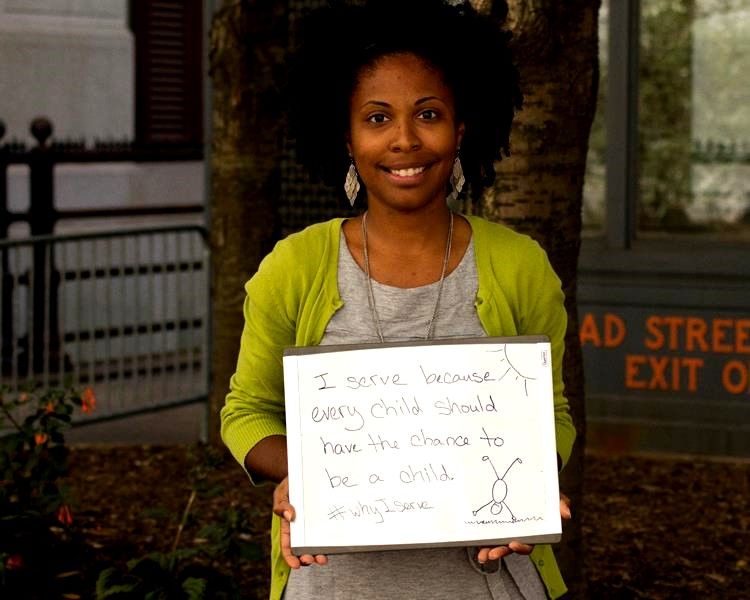 I serve because
every child should
have the chance to
be a child.
#whyIserve
AD STREE
EXIT O